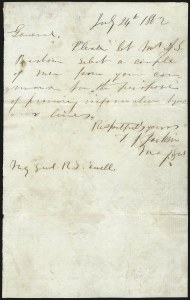 July 24th 1862
General
Please let Mr J. S.
select a couple
of men from your com
mand for the purpose
of procuring information
Respectfully yours
T J Jackson
Maj Genl
Maj Genl R. S. Ewell